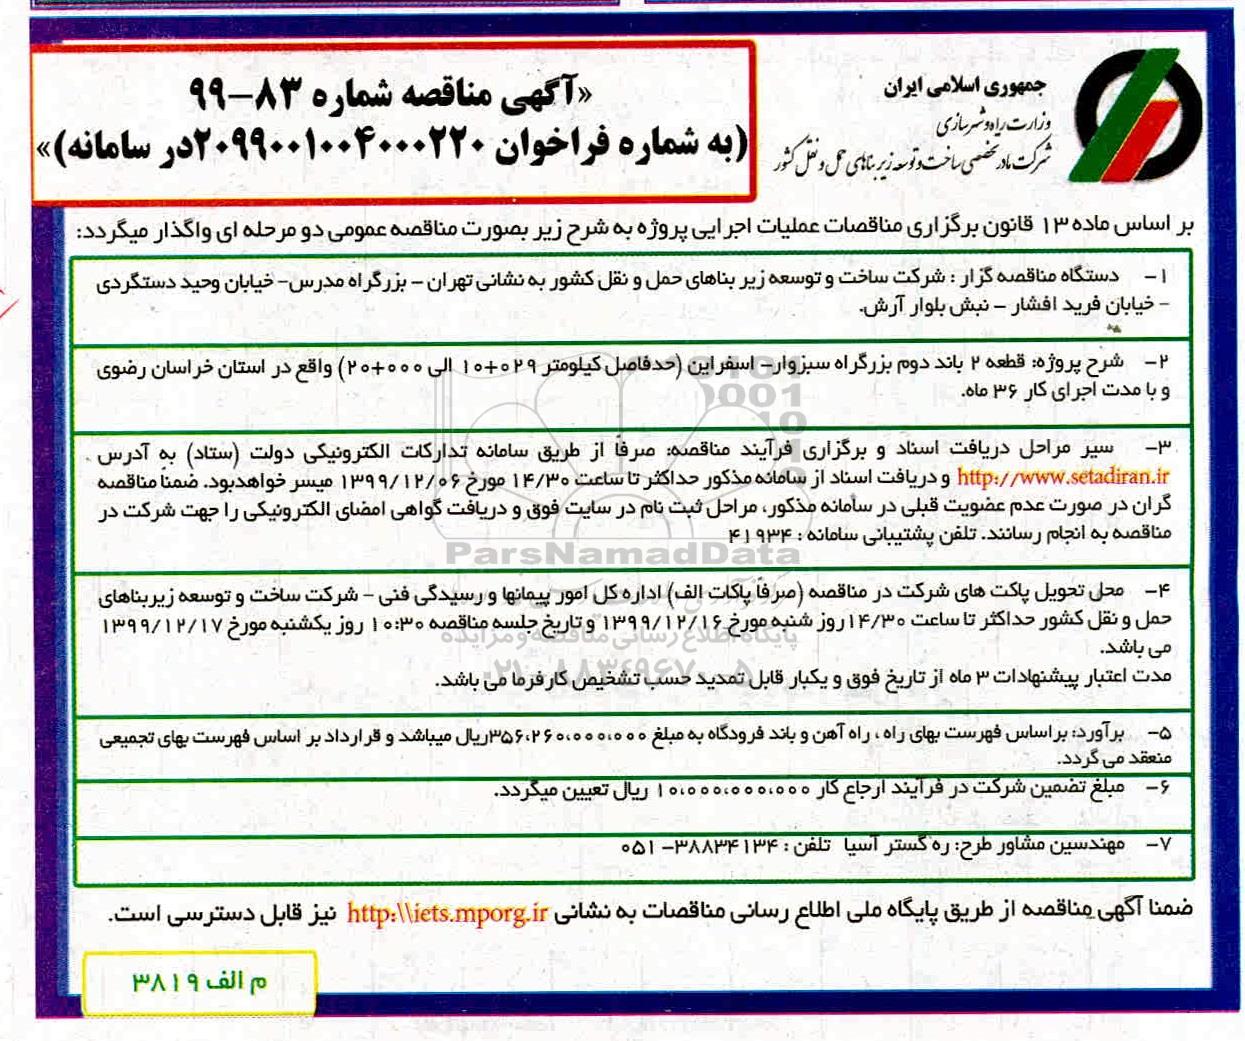 جمهوری اسلامی ایران
وزارت راه و شهرسازی
شرکت مادر تخصصی ساخت و توسعه زیربناهای حمل و نقل کشور
«آگهی مناقصه شماره ۸۳-۹۹
(به شماره فراخوان ۲۰۹۹۰۰۱۰۰۴۰۰۰۲۲۰در سامانه)»
بر اساس ماده ۱۳ قانون برگزاری مناقصات عملیات اجرایی پروژه به شرح زیر بصورت مناقصه عمومی دو مرحله ای واگذار میگردد:
۱- دستگاه مناقصه گزار : شرکت ساخت و توسعه زیر بناهای حمل و نقل کشور به نشانی تهران – بزرگراه مدرس- خیابان وحید دستگردی
- خیابان فرید افشار – نبش بلوار آرش.
۲- شرح پروژه: قطعه ۲ باند دوم بزرگراه سبزوار- اسفراین (حدفاصل کیلومتر ۰۲۹+۱۰ الی ۰۰۰+۲۰) واقع در استان خراسان رضوی
و با مدت اجرای کار ۳۶ ماه.
۳- سیر مراحل دریافت اسناد و برگزاری فرآیند مناقصه: صرفاً از طریق سامانه تدارکات الکترونیکی دولت (ستاد) به آدرس
http://www.setadiran.ir و دریافت اسناد از سامانه مذکور حداکثر تا ساعت ۱۴/۳۰ مورخ ۱۳۹۹/۱۲/۰۶ میسر خواهدبود. ضمنا مناقصه
گران در صورت عدم عضویت قبلی در سامانه مذکور، مراحل ثبت نام در سایت فوق و دریافت گواهی امضای الکترونیکی را جهت شرکت در
مناقصه به انجام رسانند. تلفن پشتیبانی سامانه : ۴۱۹۳۴
ParsNamadData
۴- محل تحویل پاکت های شرکت در مناقصه (صرفاً پاکات الف) اداره کل امور پیمانها و رسیدگی فنی – شرکت ساخت و توسعه زیربناهای
حمل و نقل کشور حداکثر تا ساعت ۱۴/۳۰روز شنبه مورخ ۱۳۹۹/۱۲/۱۶ و تاریخ جلسه مناقصه ۱۰:۳۰ روز یکشنبه مورخ ۱۳۹۹/۱۲/۱۷
می باشد.
پایگاه اطلاع رسانی مناقصه و مزایده
مدت اعتبار پیشنهادات ۳ ماه از تاریخ فوق و یکبار قابل تمدید حسب تشخیص کارفرما می باشد.
۰۲۱-۸۸۳۴۹۶۷۰-۵
۵- برآورد: براساس فهرست بهای راه ، راه آهن و باند فرودگاه به مبلغ ۳۵۶،۲۶۰،۰۰۰،۰۰۰ریال میباشد و قرارداد بر اساس فهرست بهای تجمیعی
منعقد می گردد.
۶- مبلغ تضمین شرکت در فرآیند ارجاع کار ۱۰،۰۰۰،۰۰۰،۰۰۰ ریال تعیین میگردد.
۷- مهندسین مشاور طرح: ره گستر آسیا تلفن : ۳۸۸۳۴۱۳۴- ۰۵۱
ضمنا آگهی مناقصه از طریق پایگاه ملی اطلاع رسانی مناقصات به نشانی http:\\iets.mporg.ir نیز قابل دسترسی است.
م الف ۳۸۱۹